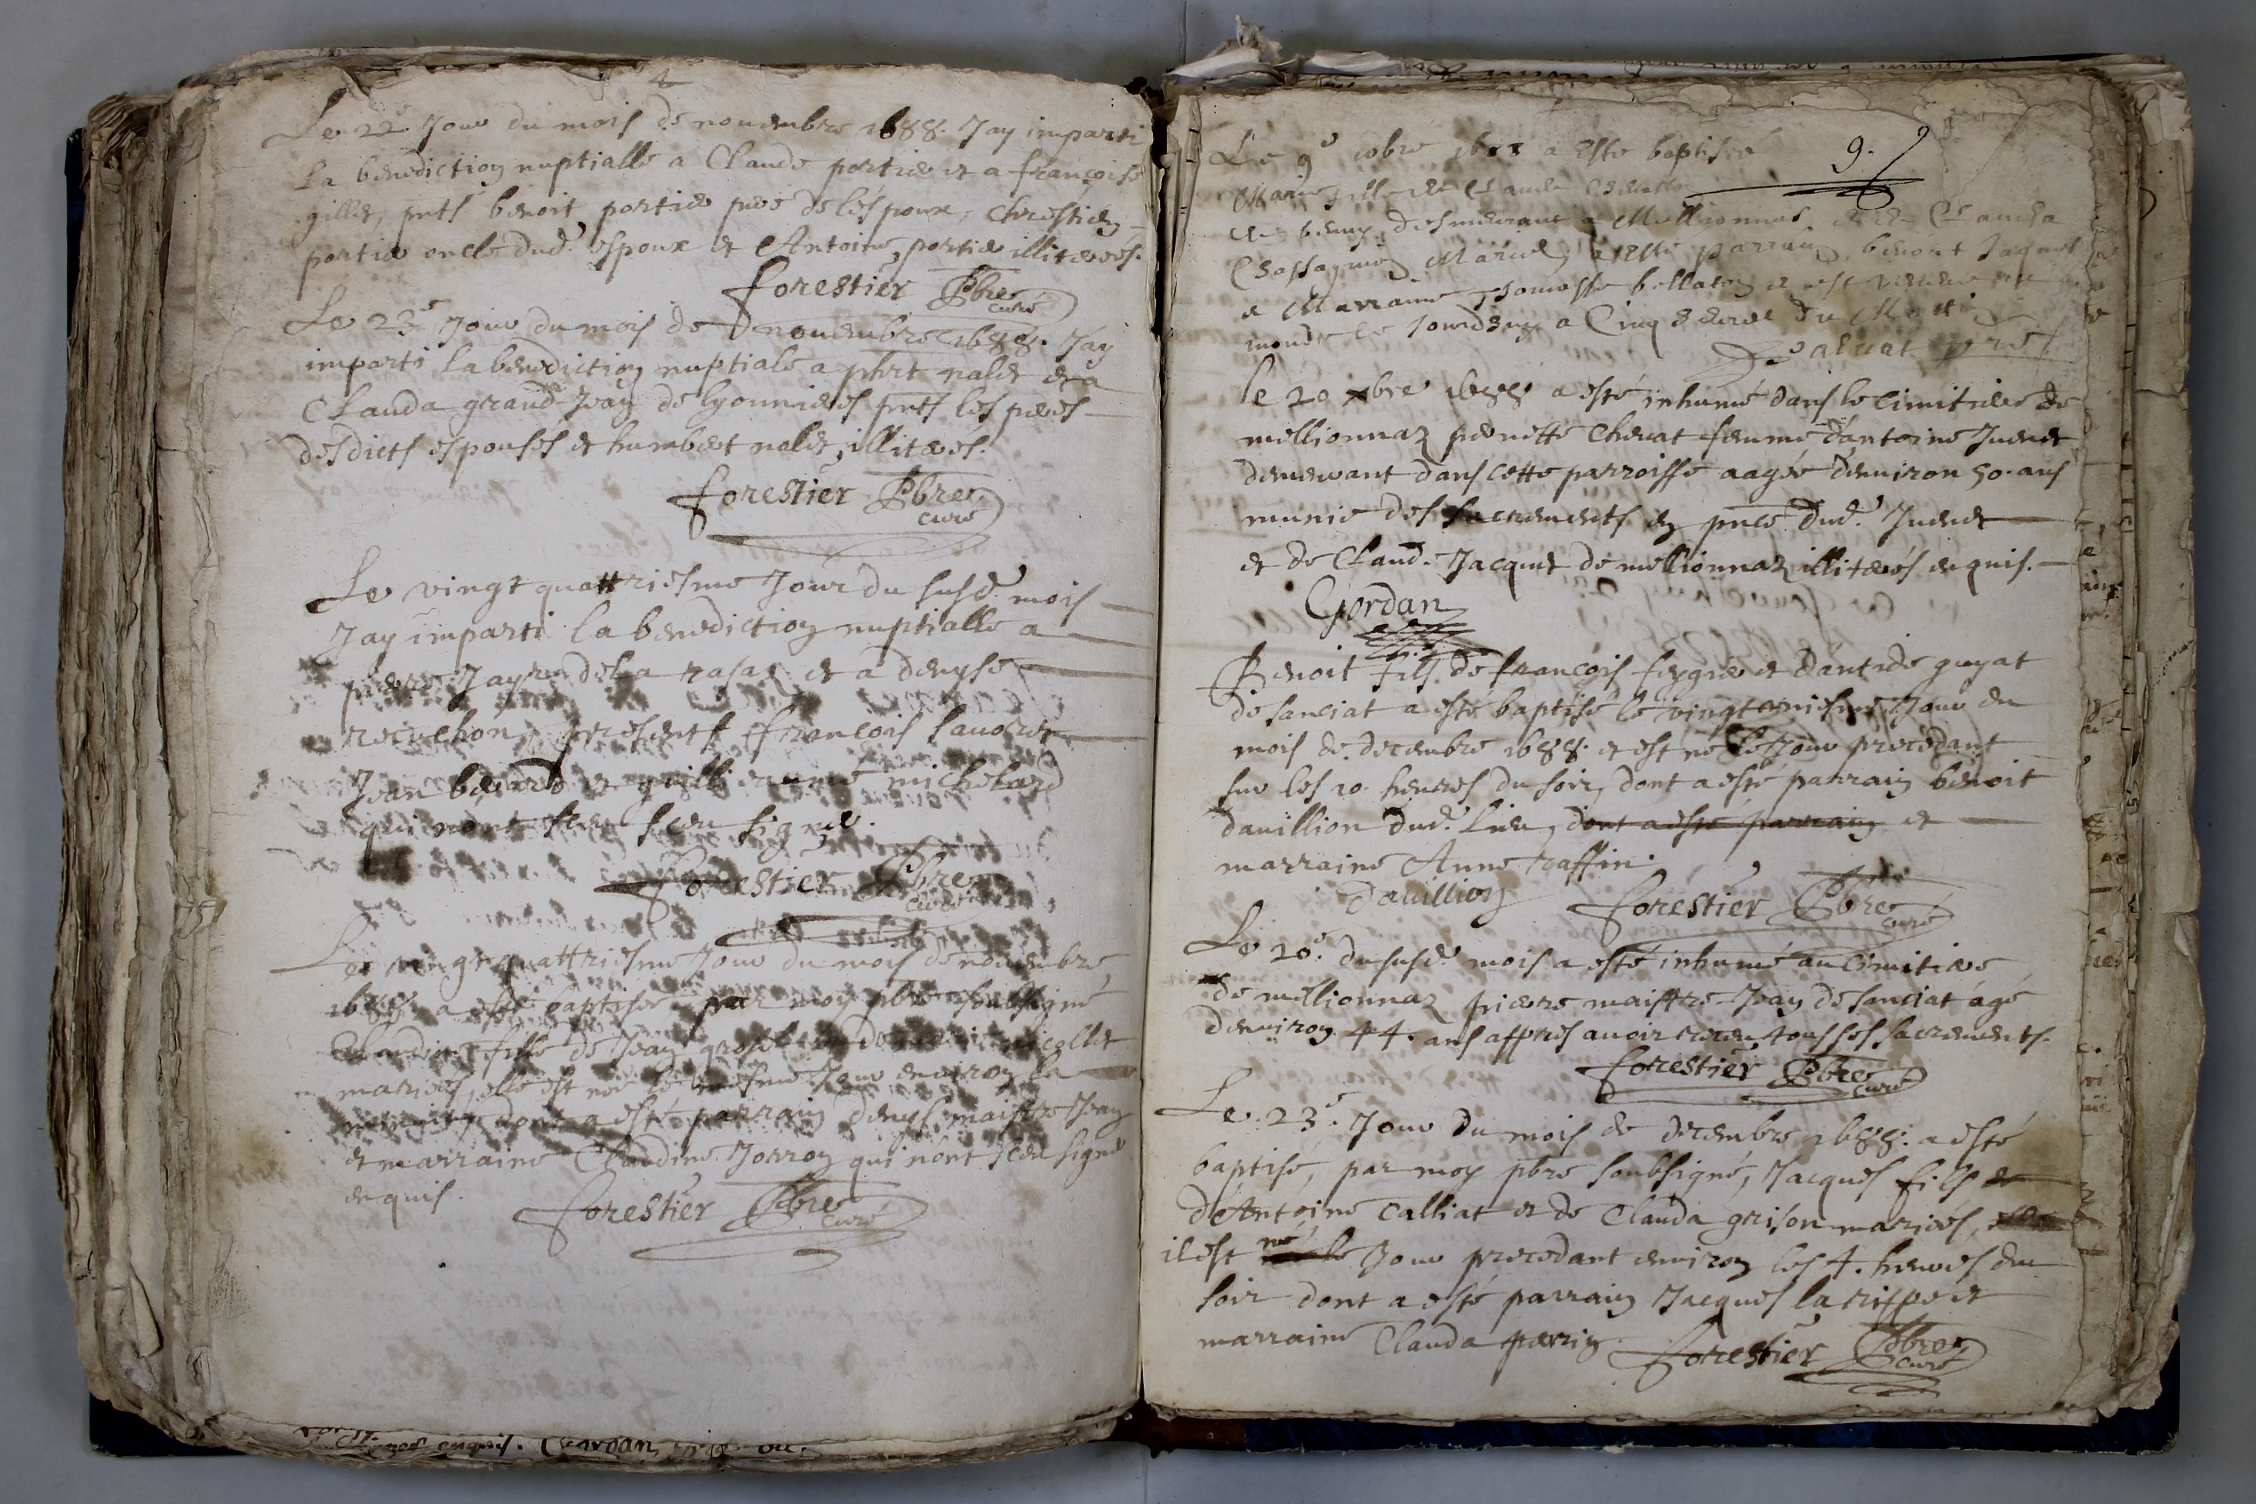 Le 22 Jour du mois de nouembre 1688. Jay imparti
la benediction nuptialle a Claude portier et a françoise
gillet, pnts benoit portier pere de lespoux, chrestien
portier oncle dud. espoux et Antoine portier illiterés.
forestier Pbre curé
Le 23e Jour du mois de nouembre 1688. Jay
imparti la benediction nuptiale a phrt nalet et a
Clauda grand Jean de lyonnieres pnts les peres
desdicts espousés et humbert nalet, illiterés.
forestier Pbre curé
Le vingt quattriesme Jour du susd. mois
Jay imparti la benediction nuptialle a
pierre Jayr de la rasaz et a denyse
recuchon, presents françois
Jean et guillienme michelard
qui nont sceu signer.
Forestier Pbre curé
Le vingt quattriesme Jour du mois de nouembre
1688 a esté baptisée par moy pbre soubsigné
Claudine fille de Jean
mariés, elle est née le Jour enuiron la
minuit, dont a esté parrain denys maistre Jean
et marraine Claudine Jorron qui nont sceu signé
enquis.
forestier Pbre curé
9.
Le 9e xbre 1688 a esté baptisée
Marie fille de Claude
de demeurant a Mellionnas, et de Clauda
Chassagne Mariés a esté parrain benoit Jaquet
et Marraine Thomasse bellaton et est venue au
monde le Jourdhuy a Cinq heures du Matin
pre
le 20 xbre 1688 a esté inhumé dans le cimitiere de
mellionnaz pernette Cheuat femme dantoine Juenet
demeurant dans cette parroisse aagée denuiron 50. ans
munie des sacrements en pnce dud. Juenet
et de Claud. Jacquet de mellionnaz illiterés enquis.
Gordan
Benoit fils de françois fergier et dantide guyat
de sanciat a esté baptisé le vingt uniesme Jour du
mois de decembre 1688. et est né le Jour precedant
sur les 10. heures du soir, dont a esté parrain benoit
dauillion dud. Lieu, dont a esté parrain et
marraine Anne raffin.
Dauillion forestier Pbre curé
Le 20e. du susd. mois a esté inhumé au cimitiere
de mellionnaz pierre maistre Jean de sanciat agé
denuiron 44. ans appres auoir receu tous ses sacrements.
forestier Pbre curé
Le 23e. Jour du mois de decembre 1688. a esté
baptisé, par moy pbre soubsigné, Jacques fils de
dAntoine Calliat et de Clauda grison mariés,
il est né le Jour precedant enuiron les 4. heures du
soir dont a esté parrain Jacques la rippe et
marraine Clauda perrin.
forestier Pbre curé